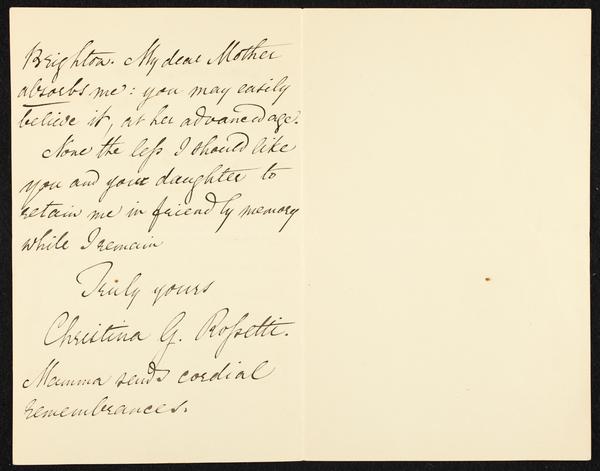 Brighton. My dear Mother
absorbs me: you may easily
believe it, at her advanced age.
None the less I should like
you and your daughter to
retain me in friendly memory
while I remain
Truly yours
Christina G. Rossetti.
Mamma sends cordial
remembrances.